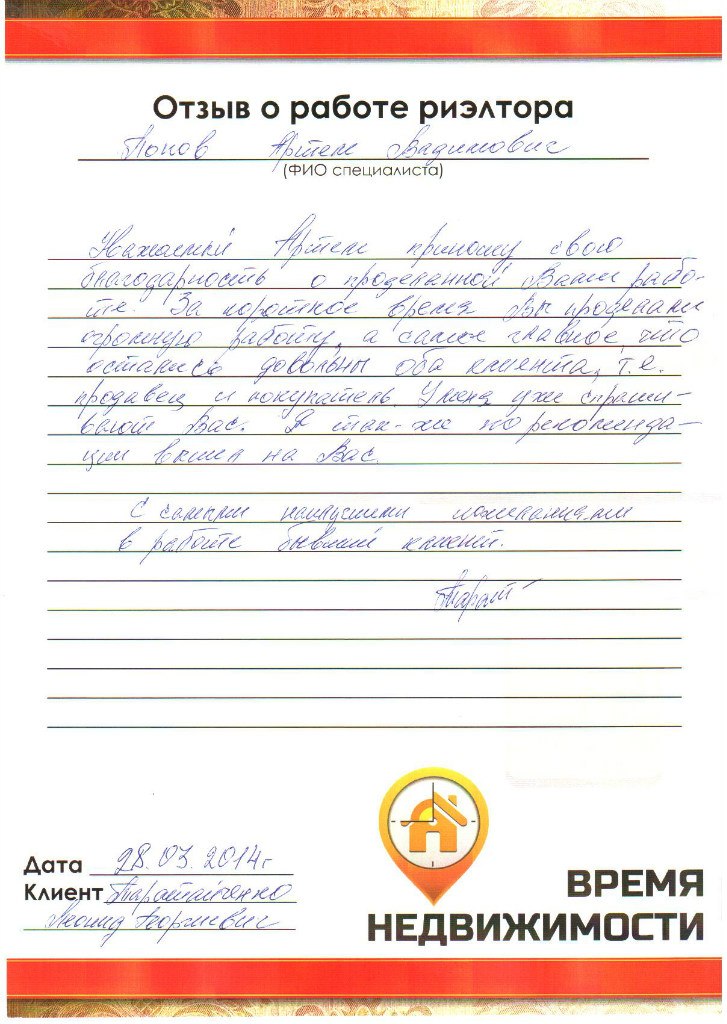 Отзыв о работе риэлтора
Попов Артем Вадимович
(ФИО специалиста)
Уважаемый Артем приношу свою
благодарность о проделанной Вами рабо-
те. За короткое время Вы проделали
огромную работу, а самое главное, что
остались довольны оба клиента, т.е.
продавец и покупатель. У меня уже спраши-
вают Вас. Я так-же по рекоменда-
ции вышел на Вас.
С самыми наилучшими пожеланиями
в работе бывший клиент.
Дата 28.03.2014г
Клиент
Леонид Георгиевич
ВРЕМЯ
НЕДВИЖИМОСТИ